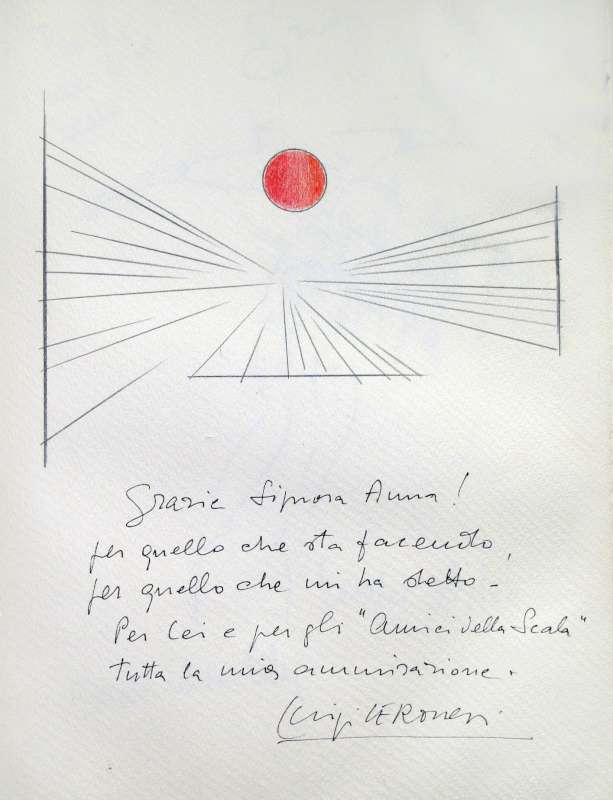 Grazie Signora Anna!
per quello che sta facendo,
per quello che mi ha detto -
Per Lei e per gli "Amici della Scala"
tutta la mia ammirazione.
Luigi VERonesi